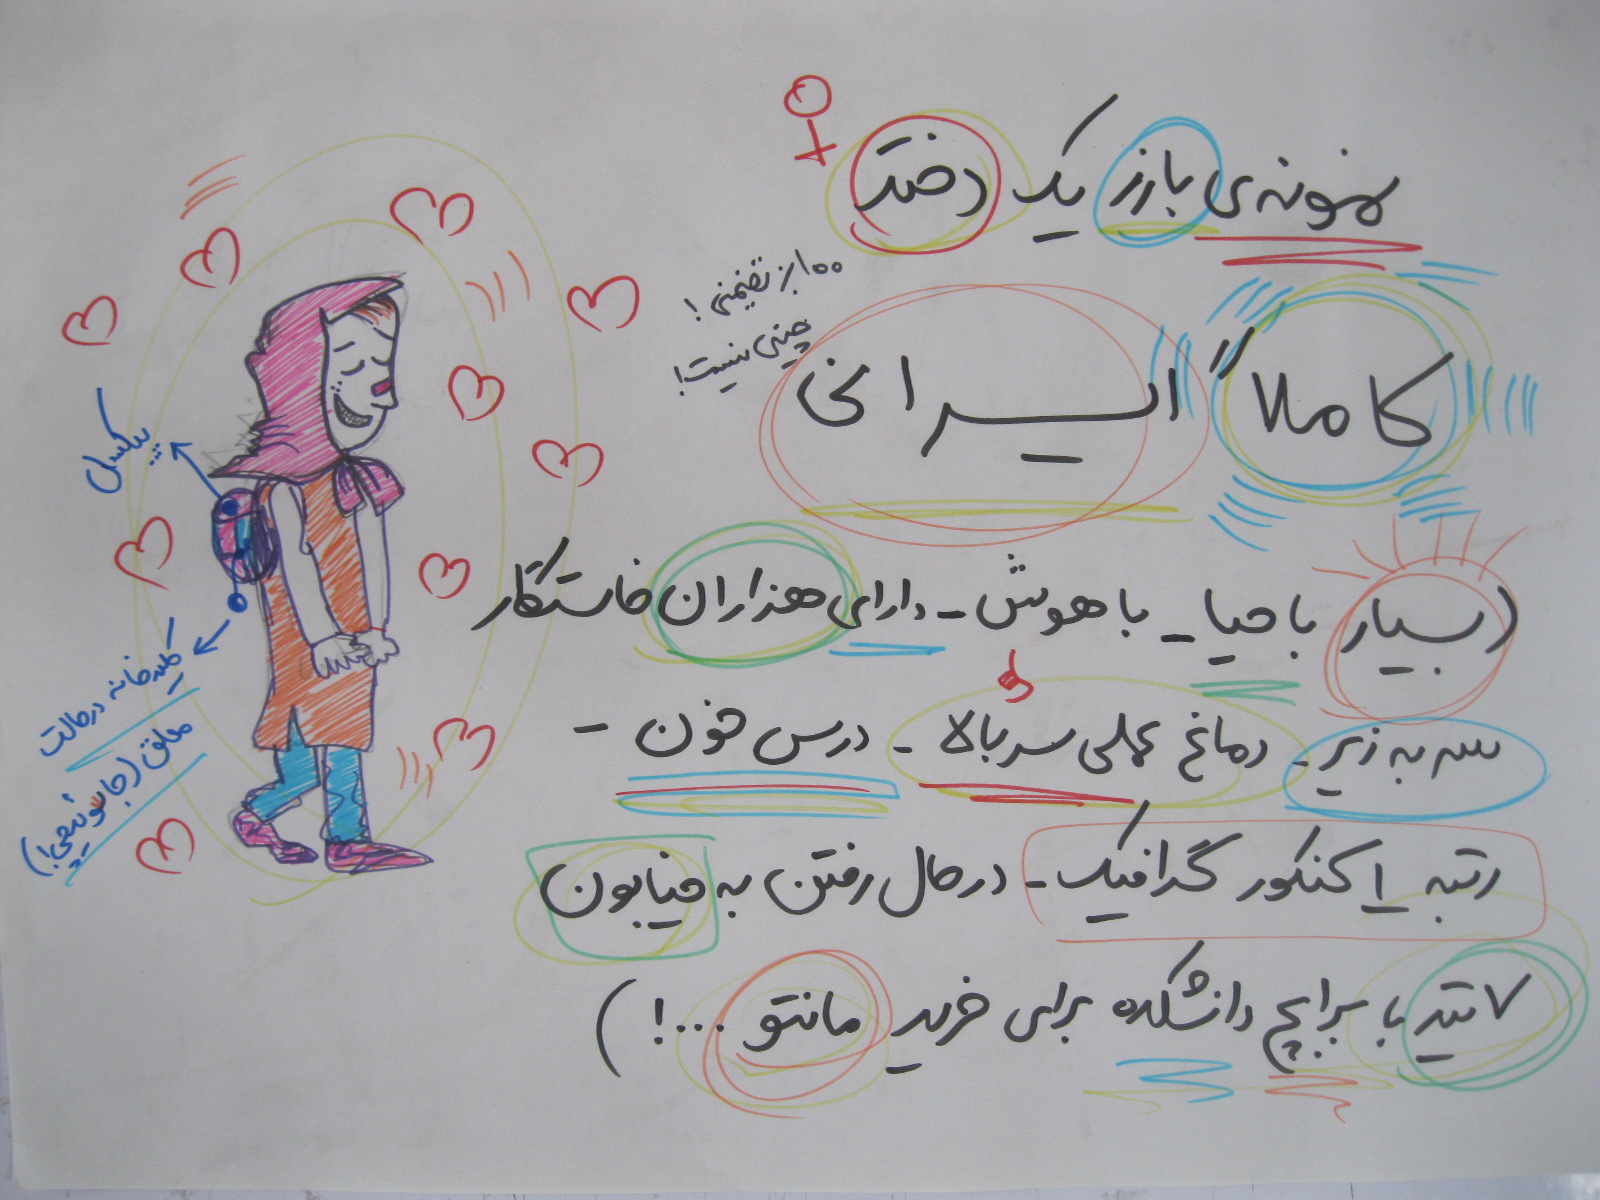 نمونه‌ی بارز یک دختر
۱۰۰٪ تضمینی!
چینی نیست!
کاملاً ایرانی
(بسیار با حیا - با هوش - دارای هزاران خاستگار
سر به زیر - دماغ عملی سر بالا - درس خون -
رتبه ۱ کنکور گرافیک - در حال رفتن به خیابون
۷ تیر با بر و بچ دانشکده برای خرید مانتو ...!)
پیکسل
کلید خانه در حالت
معلق (جاسوئیچی!)